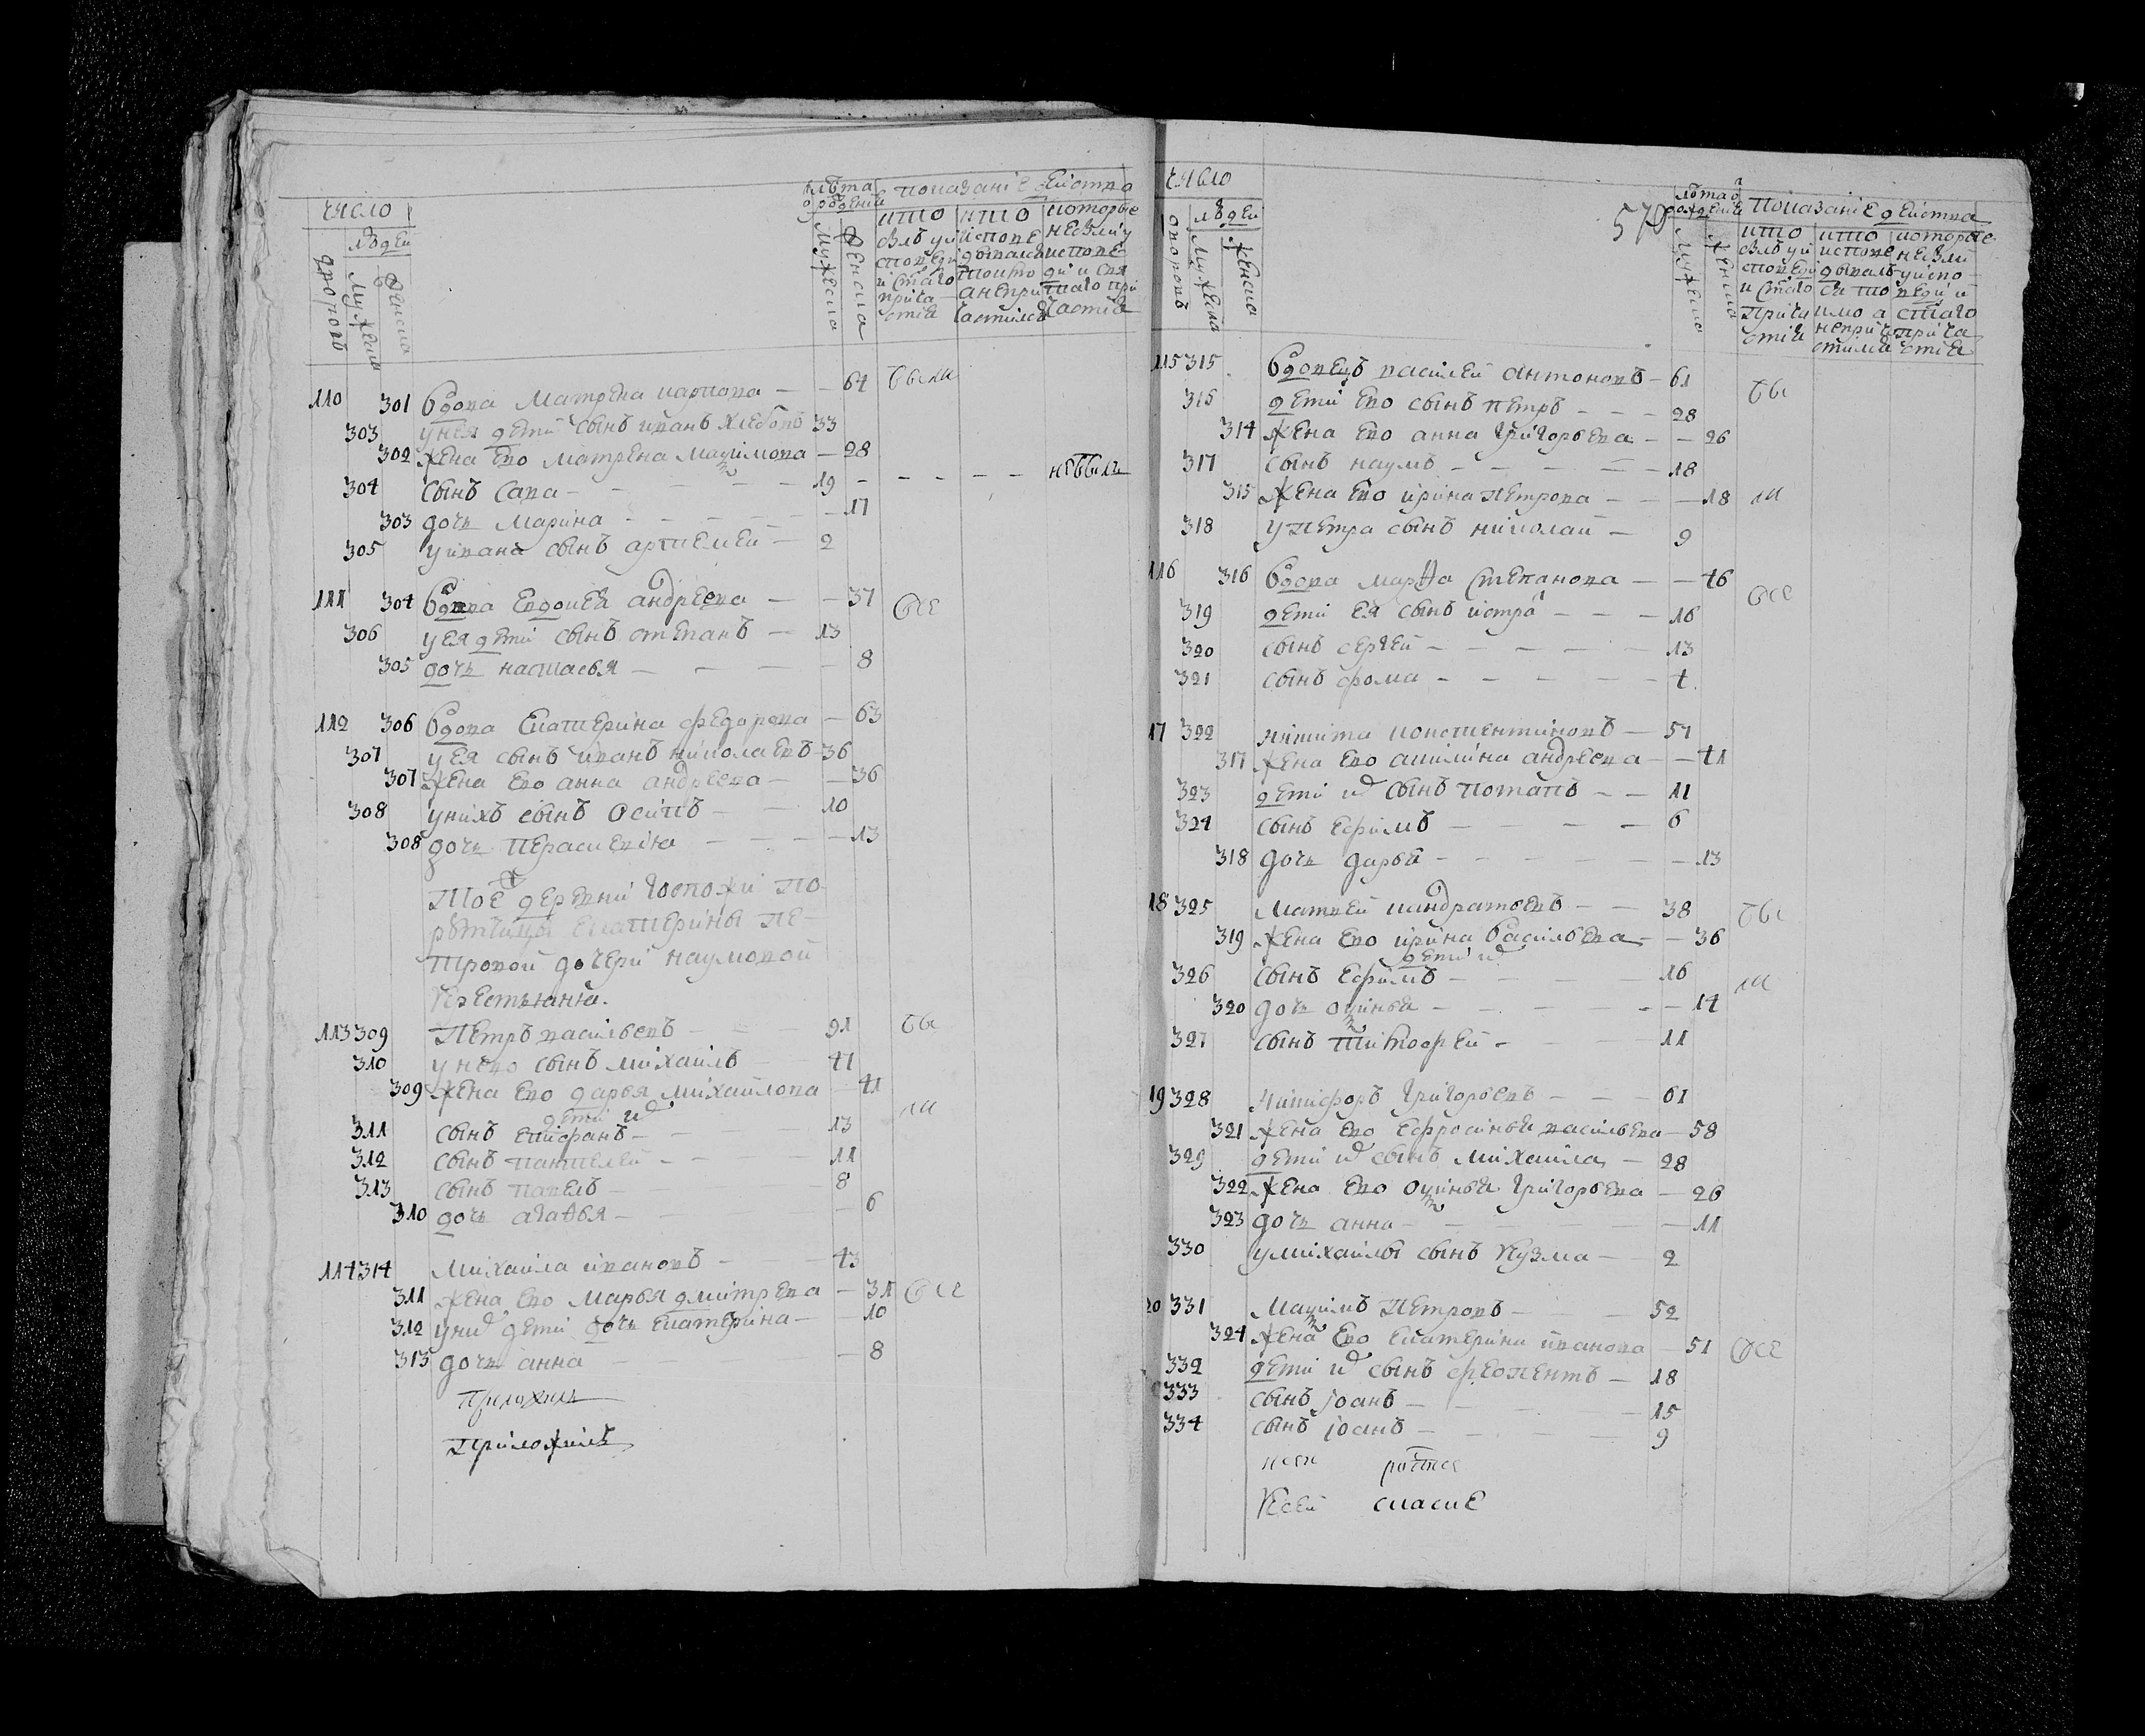 число
людей
дворовъ
мужеска
женска
лѣта
о рождении
мужеска
женска
показанiе действа
кто
былъ у и
споведи
и с̃таго
прича
стiя
кто
испове
довался
токмо
а непри
частился
которые
небыли у
испове
ди и свя
таго при
частiя
110 301 вдова матрена карпова — — 64 были
303 у нея дети сынъ иванъ хлебовъ 33
302 жена ево матрена маѯимова — 28
304 сынъ сава — 19 — — — — небылъ
303 дочь марина — 17
305 у ивана сынъ артемей — 2
111 304 вдова евдокея андреева — — 37 все
306 у ея дети сынъ степанъ — 13
305 дочь настасья — 8
112 306 вдова екатерина федорова — 63
307 у ея сынъ иванъ николаевъ — 36
307 жена ево анна андреева — — 36
308 у нихъ сынъ осипъ — 10
308 дочь перасковiя — 13
тое ж деревни госпожи по
рутчицы екатерины пе
тровой дочери наумовой
крестьяня.
113 309 петръ васильевъ — 91 бы
310 у нево сынъ михаилъ 47
309 жена ево дарья михаилова — 41
дети их ли
311 сынъ епифанъ — 13
312 сынъ пантелей — 11
313 сынъ павелъ — 8
310 дочь агаѳья — 6
114 314 михаила ивановъ — 43
311 жена ево марья дмитрева — 31 все
312 у них дети дочь екатерина — 10
313 дочь анна — 8
приложилъ
приложилъ
число
людей
дворовъ
мужеска
женска
570
лѣта о
рождении
мужеска
женска
показанiе действа
кто
былъ у и
споведи
и с̃таго
причи
стiя
кто
испове
дывалъ
ся то
кмо а
неприч
стился
которые
небыли
у испо
веди и
с̃таго
прича
стiя
115 315 вдовецъ василей антоновъ — 61 бы
316 дети ево сынъ петръ — — — 28
314 жена ево анна григорьева — — 26
317 сынъ наумъ — 18
315 жена ево ирина петрова — — — 18 ли
318 у петра сынъ николай — 9
116 316 вдова марѳа степанова — — 46 все
319 дети ея сынъ истра — — — 16
320 сынъ сергей — 13
321 сынъ фома — 4
17 322 никита констентиновъ — 57
317 жена ево акилина андреева — — 41
323 дети их сынъ потапъ — — 11
324 сынъ ефимъ — 6
318 дочь дарья — 13
18 325 матвей кандратьевъ — — 38 бы
319 жена ево ирина васильева — — 36
дети их
326 сынъ ефимъ — 16 ли
320 дочь оѯинья — 14
327 сынъ тимофей — 11
19 328 никифоръ григорьевъ — — — 61
321 жена ево ефросинья васильева — 58
329 дети их сынъ михаила — 28
322 жена ево оѯинья григорьева — 26
323 дочь анна — 11
330 у михаилы сынъ кузма — 2
20 331 маѯимъ петровъ — 52
324 жена ево екатерина иванова — 51 все
332 дети их сынъ феопентъ — 18
333 сынъ iоанъ — 15
334 сынъ iоанъ — 9
росписе
ксей скаске